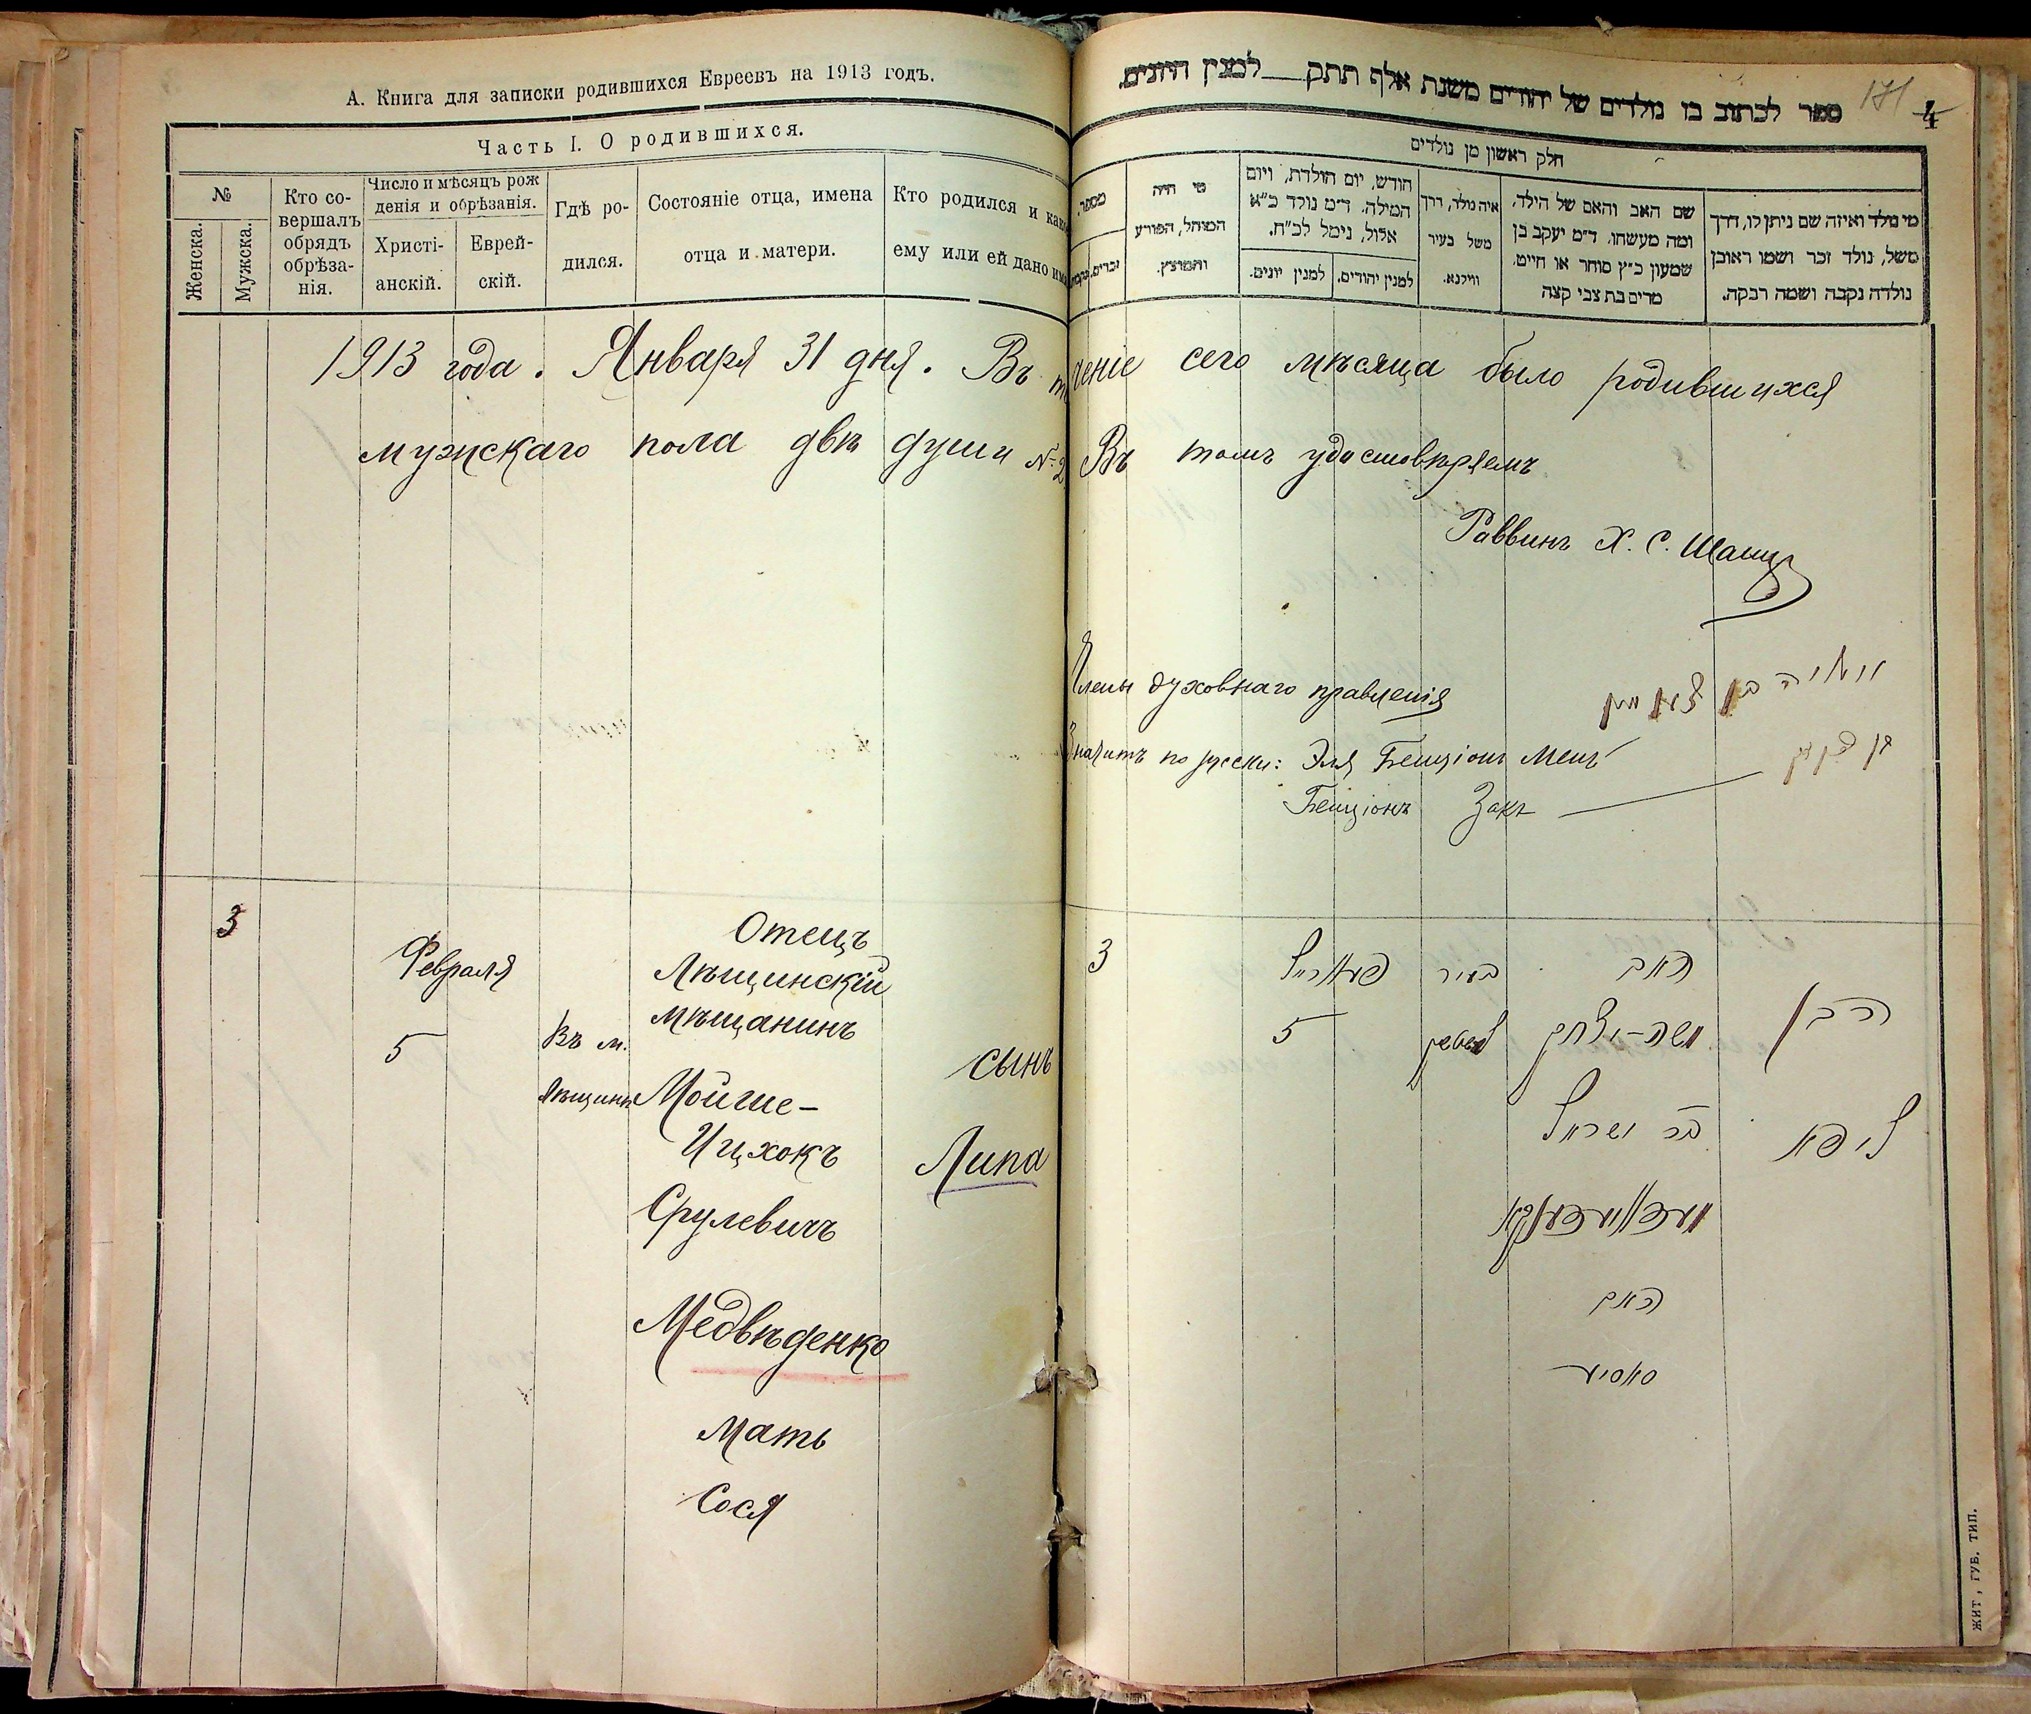 А. Книга для записки родившихся Евреевъ на 1913 годъ.
Часть I. О родившихся.
№
Женска.
Мужска.
Кто со-
вершалъ
обрядъ
обрѣза-
нія.
Число и мѣсяцъ рож
денія и обрѣзанія.
Христі-
анскій.
Еврей-
скій.
Гдѣ ро-
дился.
Состояніе отца, имена
отца и матери.
Кто родился и како
ему или ей дано имя
1913 года. Января 31 дня. Въ
мужскаго пола двѣ души № 2
3
Февраля
5
Въ м.
Лѣщинѣ
Отецъ
Лѣщинскій
мѣщанинъ
Мойше-
Ицхокъ
Срулевичъ
Медвѣденко
Мать
Сося
сынъ
Липа
171
4
ספר לכתוב בו נולדים של יהודים משנת אלף תתק למנין היונים.
חלק ראשון מן נולדים
מי נולד ואיזה שם ניתן לו, דרך
משל, נולד זכר ושמו ראובן
נולדה נקבה ושמה רבקה.
שם האב והאם של הילד,
ומה מעשהו. ד״מ יעקב בן
שמעון כ״ץ סוחר או חייט,
מרים בת צבי קצה
איה נולד, דרך
משל בעיר
ווילנא.
חודש, יום הולדת, ויום
המילה. ד״מ נולד כ״א
אלול, נימל לכ״ח.
למנין יהודים.
למנין יונים.
מי היה
המוהל, הפורע
והמוצץ.
מספר.
זכרים.
ченіе сего мѣсяца было родившихся
Въ томъ удостовѣряемъ
Раввинъ Х. С. Шапиро
Члены духовнаго правленія
Значитъ по русски: Эля Бенціонъ Менъ
Бенціонъ Закъ
3
פעווראל
5
בעיר
האב
משה-יצחק
בר ישראל
מעדוועדענקא
האם
סאסיע
הבן
ליפא
ЖИТ, ГУБ. ТИП.